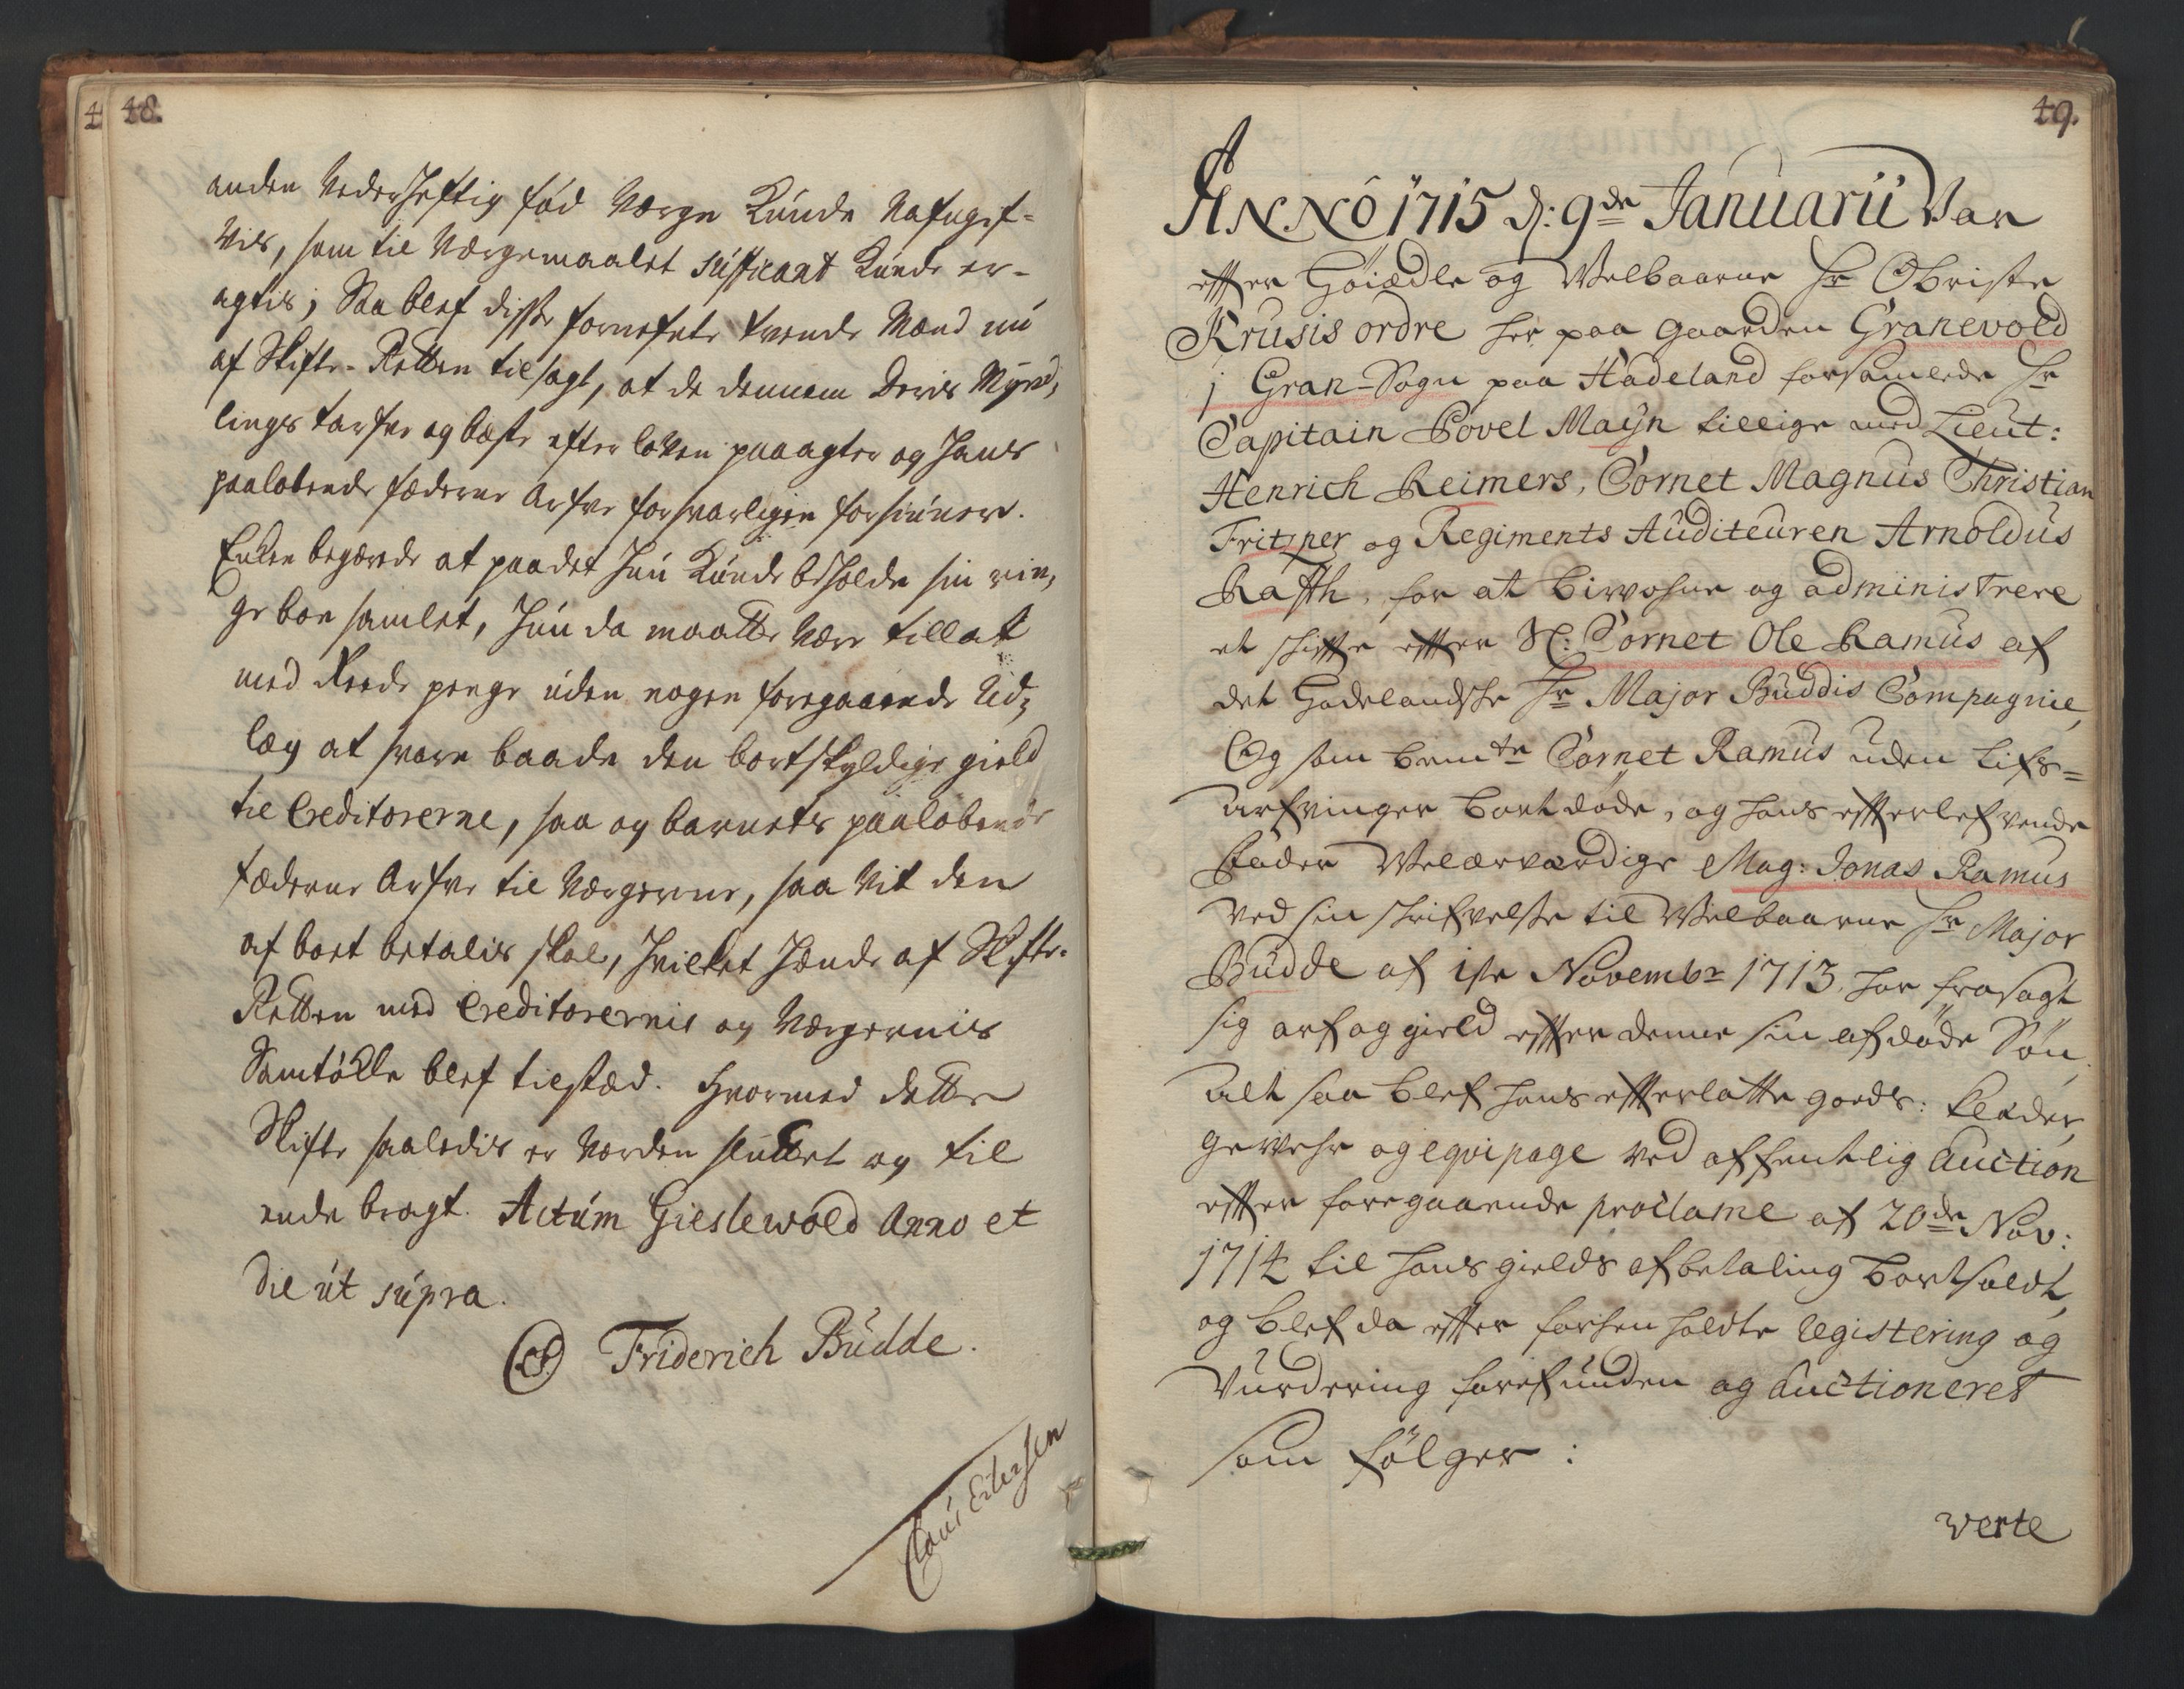 48.
anden Vederheftig fød Værge Kunde
Vis, som til Værgemaalet sufficant Kunde er-
agtis; Saa blef disse fornefnte tvende Mænd nu
af Skifte-Retten tilsagt, at de dennem Deris Mynd,
lings tarfve og bæste efter loven paaagter og hans
paaløbende fæderne Arfve forsvarligen forsiuner.
Enken begærede at paadet hun Kunde beholde sin rin,
ge boe samlet, hun da maatte være tillat
med Reede penge uden nogen foregaaende Ud,
læg at svare baade den bortskyldige gield
til Creditorerne, saa og barnets paaløbende
fæderne Arfve til Værgerne, saa vit den
af boet betalis skal, hvilket hænde af Skifte-
Retten med Creditorernis og Værgernis
Samtÿkke blef tilstæd. Hvormed dette
Skifte saaledis er Vorden sluttet og til
ende bragt. Actum Gieslewold Anno et
Die ut supra.
Friderich Budde.
49.
ANNO 1715 d: 9de Januarii Var
effter Høiædle og Welbaarne Hr Obriste
Krusis ordre her paa gaarden Granevold
j Gran-Sogn paa Hadeland forsamlede Hr
Capitain Povel Maÿn tillige med Lieut:
Henrich Reimers, Cornet Magnus Christian
Fritzner og Regiments Auditeuren Arnoldus
Rafth, for at biwohne og administrere
et schiffte effter Sl: Cornet Ole Ramus af
det Hadelandske Hr Major Buddis Compagnie,
Og som bemte Cornet Ramus uden lifs=
arfvinger bortdøde, og hans effterlefvende
fader Welærværdige Mag: Jonas Ramus
ved sin schrifvelse til Welbaarne Hr Major
Budde af 1ste Novembr 1713, har frasagt
sig arf og gield effter denne sin afdøde Søn,
alt saa blef hans effterlatte goeds: kleder,
gewehr og eqvipage ved offentlig Auction
effter foregaaende proclame af 20de Nov:
1714 til hans gields afbetaling bortsoldt,
og blef da effter forhen holdte registering og
Vurdering forefunden og Auctioneret
som følger:
verte